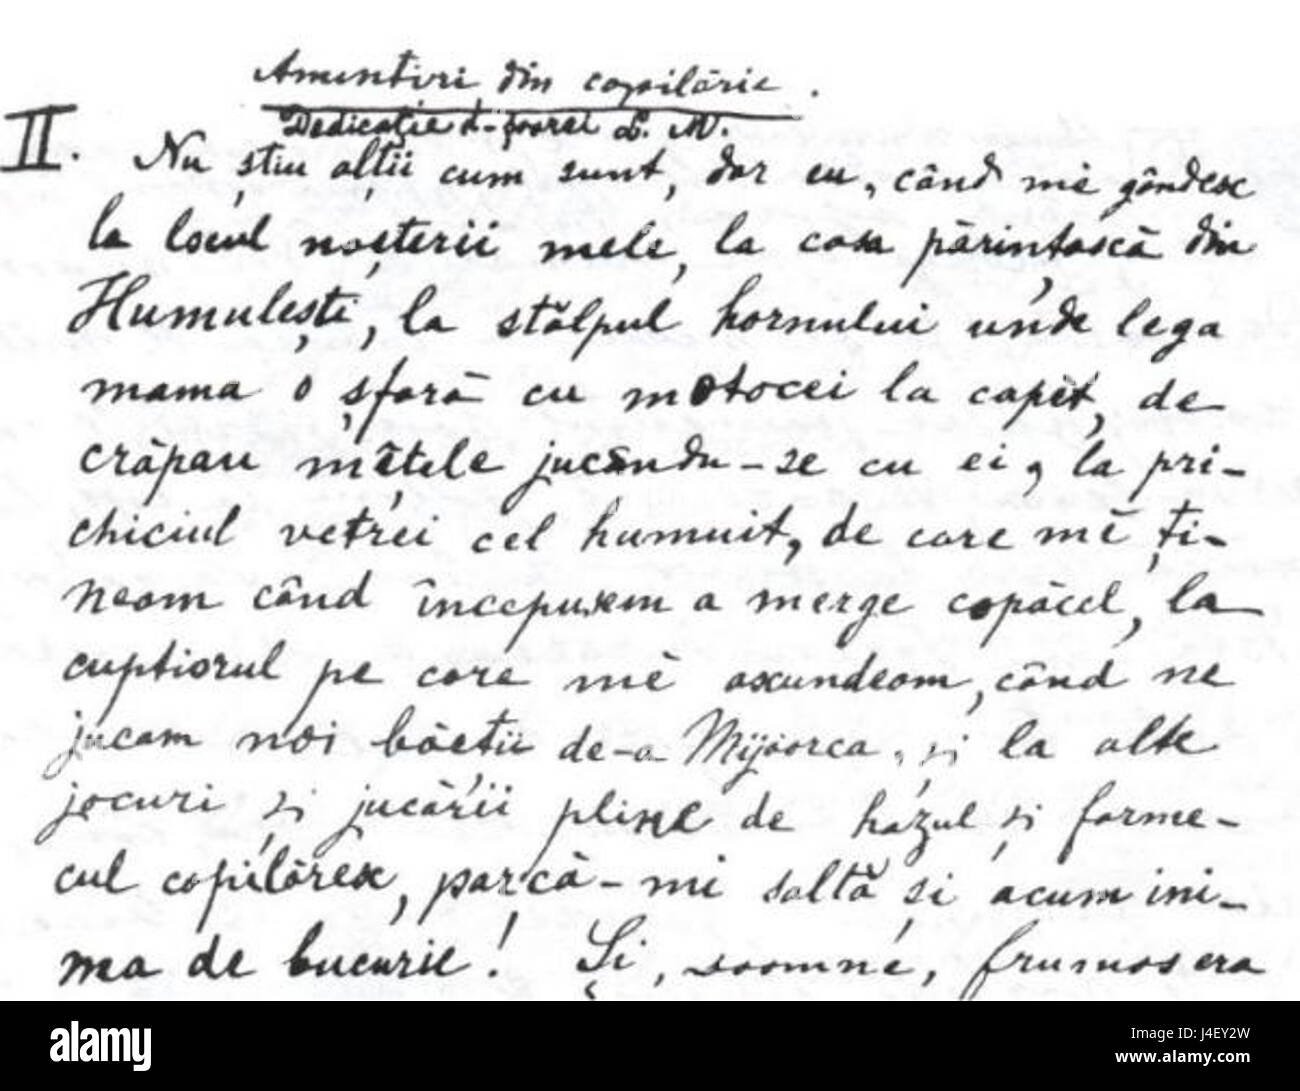 Amintiri din copilărie.
Dedicație d-șoarei L. M.
II. Nu știu alții cum sunt, dar eu, când mĕ gândesc
la locul nașterii mele, la casa părințască din
Humulești, la stălpul hornului unde lega
mama o șfară cu motocei la capĕt, de
crăpau mâțele jucându-se cu ei, la pri-
chiciul vetrei cel humuit, de care mĕ ți-
neam când începusem a merge copăcel, la
cuptiorul pe care mĕ ascundeam, când ne
jucam noi băetii de-a Mijoarca, și la alte
jocuri și jucării pline de hazul și farme-
cul copilăresc, parcă-mi saltă și acum ini-
ma de bucurie! Și, doamne, frumos era
alamy stock photo
a
alamy
Image ID: J4EY2W
www.alamy.com